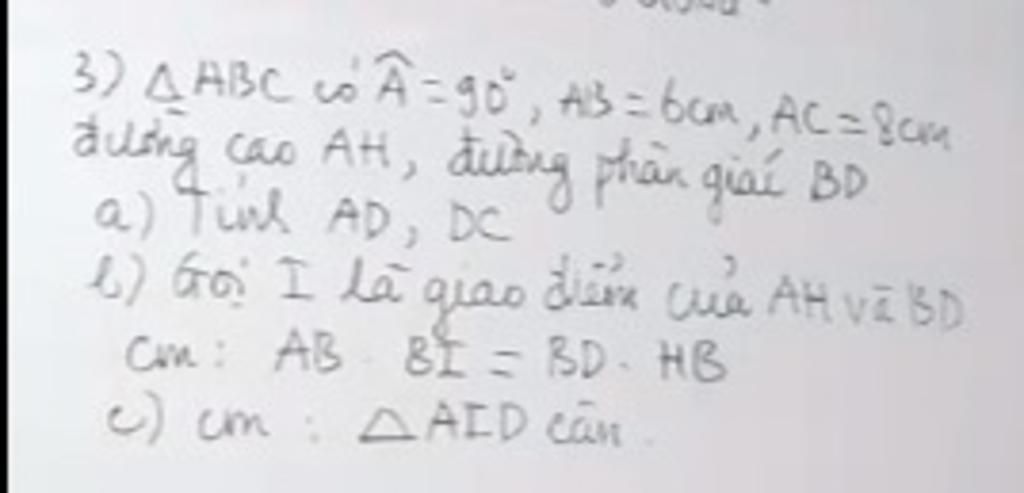 3) △ABC có Â = 90°, AB = 6cm, AC = 8cm
đường cao AH, đường phân giác BD
a) Tính AD, DC
b) Gọi I là giao điểm của AH và BD
Cm : AB . BI = BD . HB
c) cm : △AID cân .